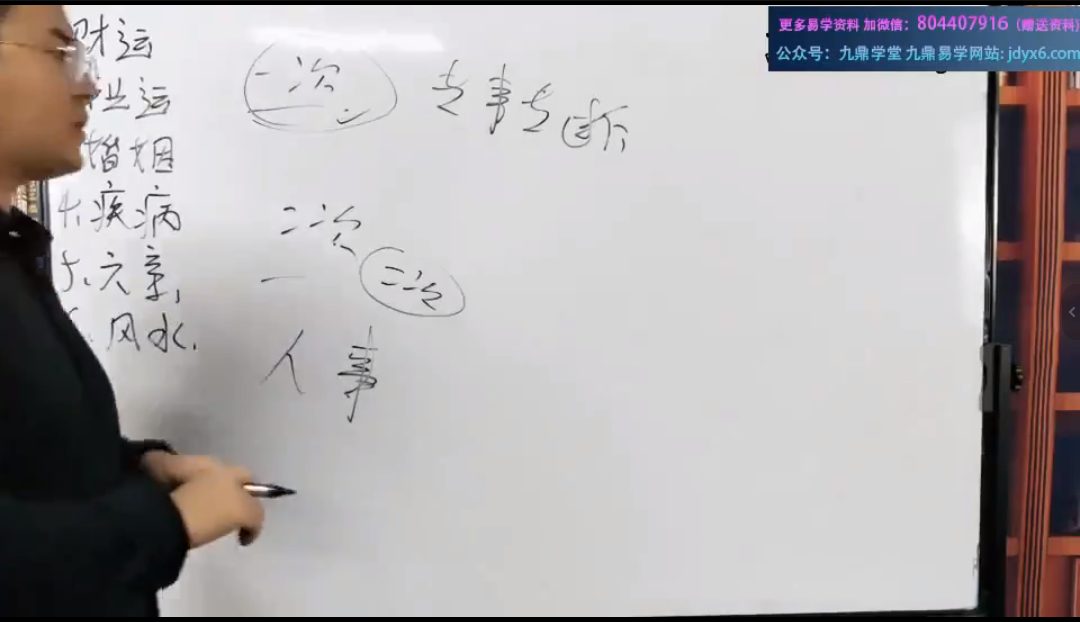 更多易学资料 加微信：804407916（赠送资料）
公众号：九鼎学堂 九鼎易学网站: jdyx6.com
财运
业运
婚姻
4、疾病
5、六亲,
风水.
一次 专事专断
二次
一 二次
人事